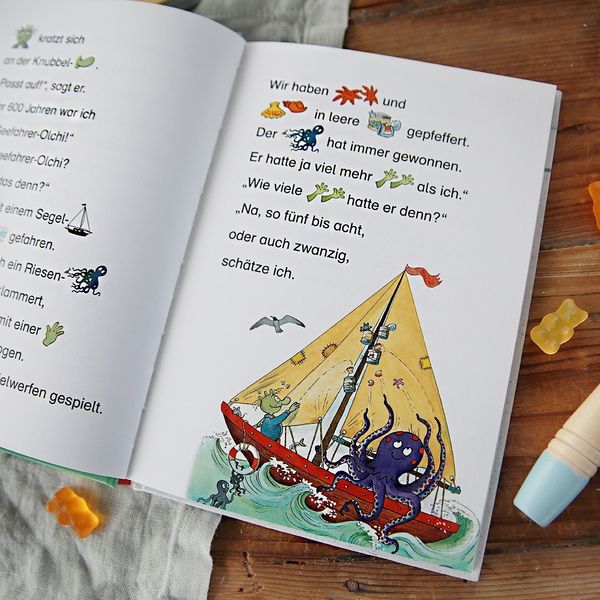 kratzt sich
an der Knubbel-.
Passt auf!", sagt er.
600 Jahren war ich
Seefahrer-Olchi!"
Seefahrer-Olchi?
das denn?"
einem Segel-
gefahren.
ein Riesen-
klammert,
mit einer
ogen.
elwerfen gespielt.
Wir haben und
in leere gepfeffert.
Der hat immer gewonnen.
Er hatte ja viel mehr als ich."
„Wie viele hatte er denn?"
„Na, so fünf bis acht,
oder auch zwanzig,
schätze ich.